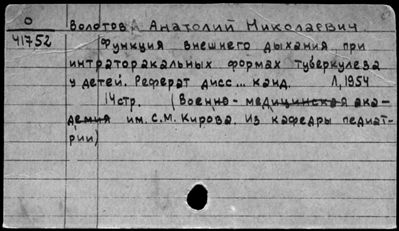 О Болотов, Анатолий Николаевич.
41752 Функция внешнего дыхания при
интраторакальных формах туберкулеза
у детей. Реферат дисс... канд. Л, 1954
14 стр. (Военно-медицинская ака-
демия им. С.М. Кирова. Из кафедры педиат-
рии)